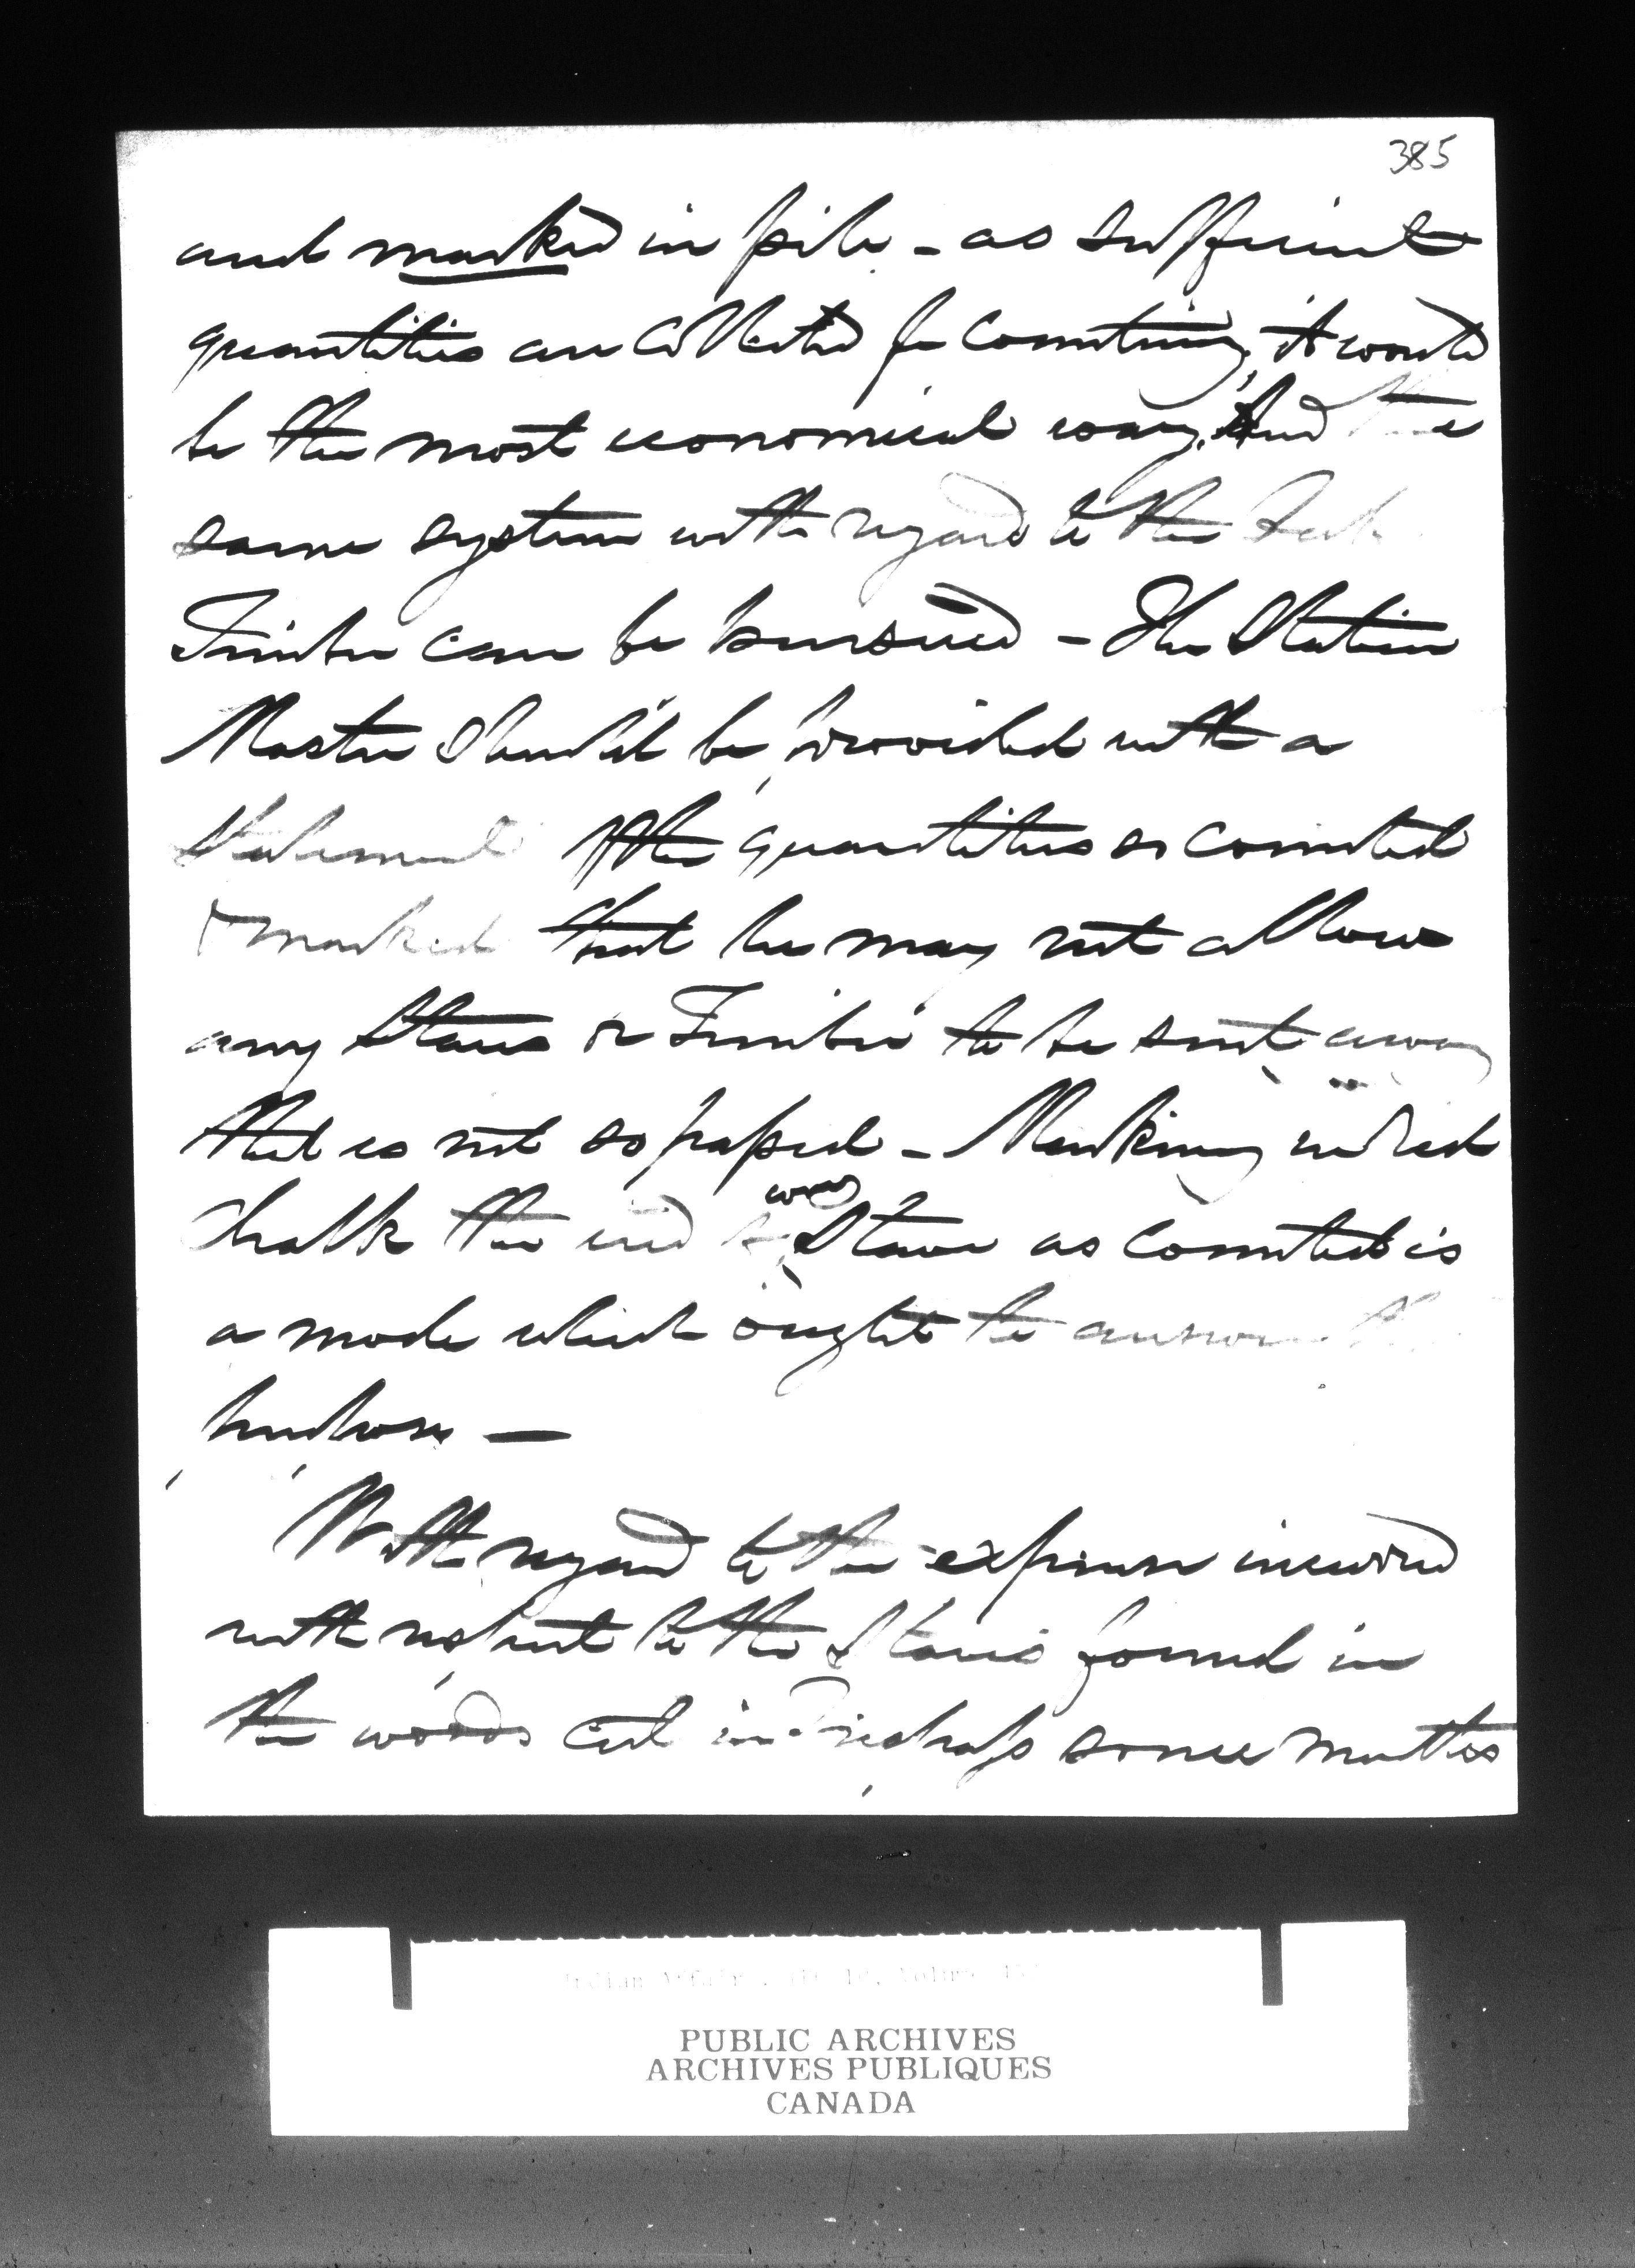 385
and marked in pile - as sufficient
quantities are collected for counting, it would
be the most economical way. And the
same system with regard to the
Timber can be pursued - The Station
Master should be provided with a
Statement of the quantities so counted
& marked that he may not allow
any Staves or Timber to be sent away
that is not so passed - Marking with red
chalk the end of every Stave as counted is
a mode which ought to answer the
purpose —
With regard to the expense incurred
with respect to the Staves found in
the woods cut in perhaps some months
Indian Affairs
PUBLIC ARCHIVES
ARCHIVES PUBLIQUES
CANADA